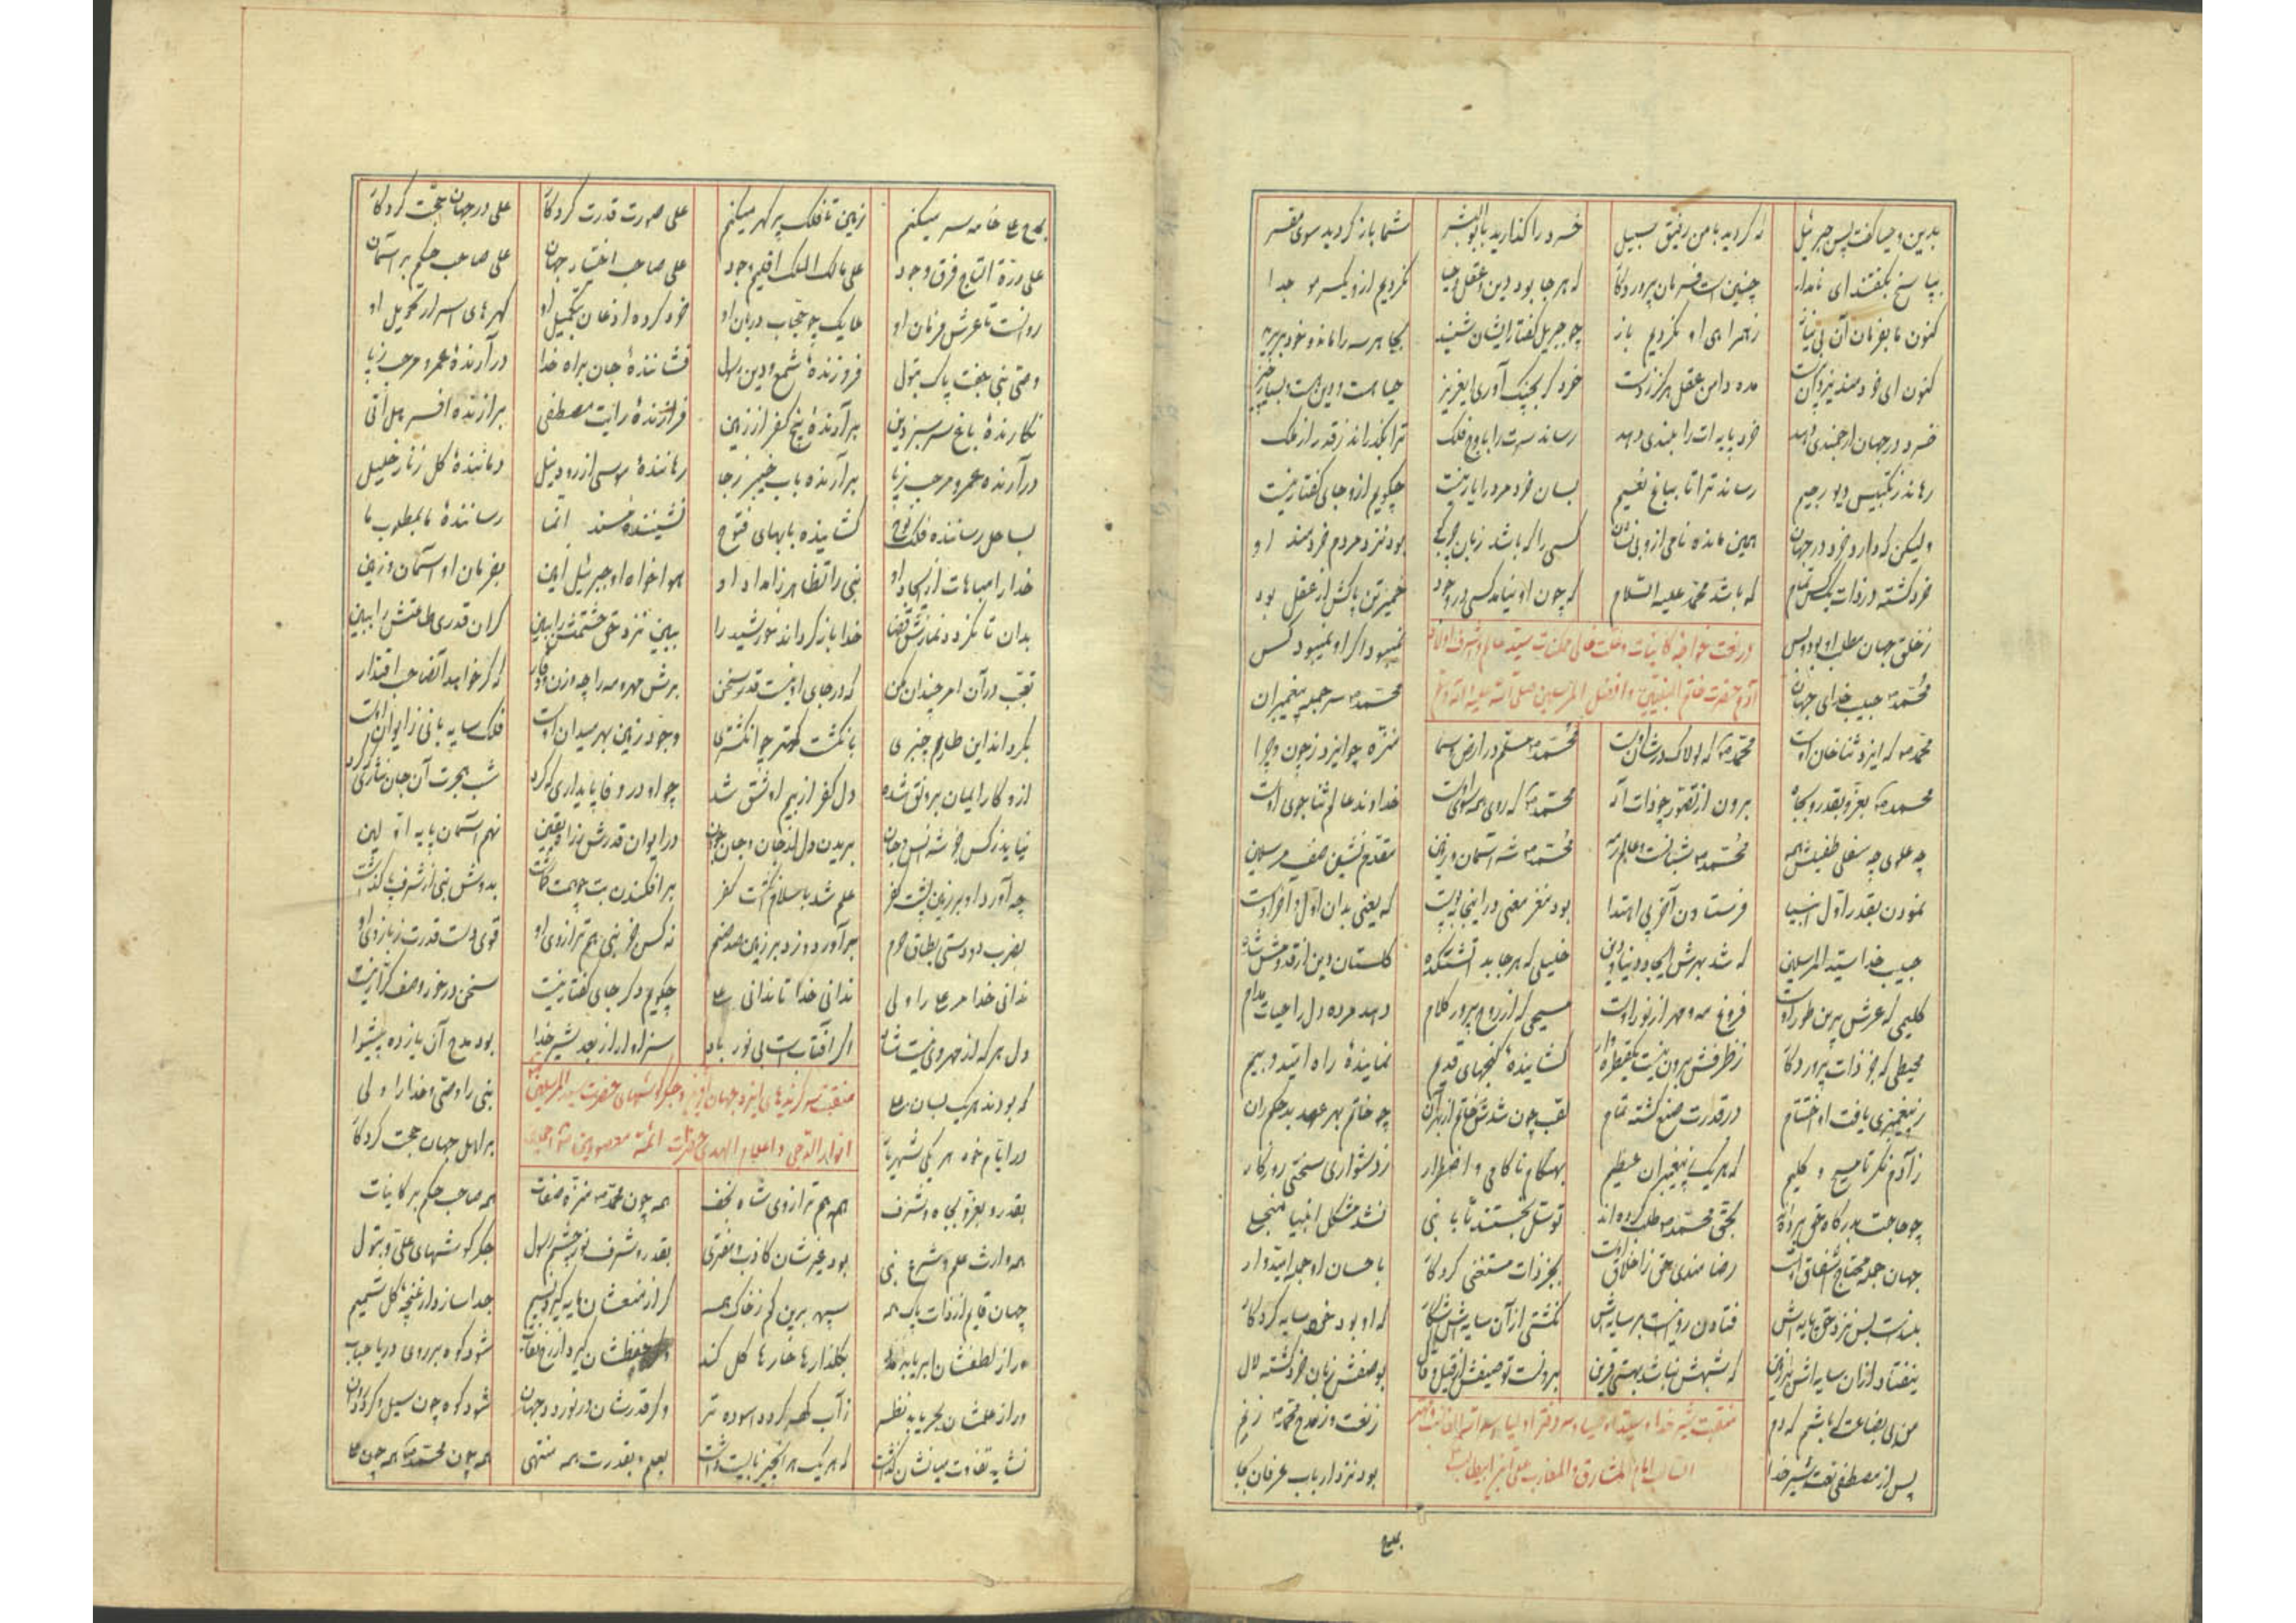 بدین و حیا گفت پس جبرئیل که گردید با من رفیق سبیل خرد را گذارید با بوالبشر شما باز گردید سوی مقر
بپاسخ بگفتند ای نامدار چنین است فرمان پروردگار که هر جا بود دین و عقل و حیا نگردیم از و یکسر مو جدا
کنون ما بفرمان آن بی نیاز ز همراهی او نگردیم باز چو جبریل گفتار ایشان شنید بجا هر سه را ماند و خود بر پرید
کنون ای خردمند یزدان مده دامن عقل هرگز ز دست خرد گر بچنگ آوری ای عزیز حیا هست و دین هست و بسیار چیز
خرد در جهان ارجمندی دهد خرد پایه ات را بلندی دهد رساند سرت را باوج فلک ترا بگذراند ز قدر از ملک
رهاند ز تلبیس دیو رجیم رساند ترا تا بباغ نعیم بسان خرد مرد را یار نیست چگویم ازو جای گفتار نیست
ولیکن که دارد خرد در جهان همین مانده نامی ازو بی نشان کسی را که باشد زبان بود نزد مردم خردمند او
خرد گشته در ذات یکس تمام که باشد محمد علیه السلام که چون او نیامد کسی در وجود خمیر تن پاکش از عقل بود
ز خلق جهان مطلب او بود و بس نمیبود اگر او نمیبود کس
در نعت خواجه کاینات و علت غائی ممکنات سید عالم و اشرف اولاد
آدم حضرت خاتم النبیین و افضل المرسلین صلی الله علیه و آله و سلم
محمد حبیب خدای جهان محمد سر جمله پیغمبران
محمد که ایزد ثنا خوان اوست محمد که لولاک در شان اوست محمد مسلم در ارض و سما منزه چو ایزد ز چون و چرا
محمد بعز و بقدر و بجاه برون از تصور چو ذات اله محمد که روی همه سوی اوست خداوند عالم ثنا جوی اوست
چه علوی چه سفلی طفیلش همه محمد شبانست و عالم رمه محمد شه آسمان و زمین مقدم نشین صف مرسلین
نمودن بقدر اول انبیا فرستادن آخر پی اهتدا بود نغز معنی در اینجا که یعنی بدان اول و آخر اوست
حبیب خدا سید المرسلین که شد بهرش ایجاد دنیا و دین خلیلی که هر جا بد آتشکده گلستان دین از قدومش شده
کلیمی که عرش برین طور اوست فروغ مه و مهر از نور اوست مسیحی که از روح پرور کلام دهد مرده دل را حیات مدام
محیطی که جز ذات پروردگار ز ظرفش برون نیست یکقطره وار گشایندهٔ گنجهای قدیم نمایندهٔ راه امید و بیم
ز پیغمبری یافت او اختتام در قدرت صنع گشته تمام لقب چون شدش خاتم از بهر آن چو خاتم بهر عهد بد حکمران
ز آدم نگر تا مسیح و کلیم که هر یک ز پیغمبران عظیم بهنگام ناکامی و اضطرار ز دشواری سختی روزگار
چو حاجت بدرگاه حق برده‌اند بحق محمد طلب کرده‌اند توسل نجستند تا با نبی نشد مشکل انبیا منجلی
جهان جمله محتاج اشفاق اوست رضامندی حق ز اخلاق اوست بجز ذات مستغنی کردگار باحسان او جمله امیدوار
بلندست بس نزد حق پایه‌اش فتادن روا نیست بر سایه‌اش نگشتی از آن سایه‌اش آشکار که او بود خود سایه کردگار
نیفتاد از آن سایه‌اش بر زمین که شبهش نباشد بهستی قرین برونست توصیفش از قیل و قال بوصفش زبان خرد گشته لال
من بی بضاعت که باشم که دم ز نعت و ز مدح محمد زنم
منقبت شیر خدا و سید اوصیا و سر دفتر اولیا اسد الله الغالب
امام المشارق و المغارب علی ابن ابیطالب
پس از مصطفی نعت شیر خدا بود نزد ارباب عرفان بجا
بمدح
بمدح علی خامه سر میکنم زمین تا فلک پر گهر میکنم علی صورت قدرت کردگار علی در جهان حجت کردگار
علی درة التاج فرق وجود علی مالک الملک اقلیم جود علی صاحب اختیار جهان علی صاحب حکم بر آسمان
روانست تا عرش فرمان او ملایک چو حجاب دربان او خرد کرده اذعان تکمیل او گهرهای اسرار تحویل او
وصی نبی جفت پاک بتول فروزندهٔ شمع دین رسول فشانندهٔ جان براه خدا در آرندهٔ عمرو و مرحب ز پا
نگارندهٔ باغ سرسبز دین برآرندهٔ بیخ کفر از زمین فرازندهٔ رایت مصطفی برازندهٔ افسر هل اتی
در آرندهٔ عمرو و مرحب ز پا برآرندهٔ باب خیبر ز جا رهانندهٔ موسی از رود نیل دمانندهٔ گل ز نار خلیل
بساحل رسانندهٔ فلک نوح گشایندهٔ بابهای فتوح نشینندهٔ مسند انما رسانندهٔ ما بمطلوب ما
خدا را مباهات از ایجاد او نبی را تظاهر ز امداد او هواخواه او جبرئیل امین بفرمان او آسمان و زمین
بدان تا نگردد نمازش قضا خدا باز گرداند خورشید را ببین نزد حق حشمتش را ببین گران قدری طاعتش را ببین
تعجب در آن امر چندان مکن که در جای او نیست قدر سخن برش مهر و مه را چه وزن و وقار که گر خواهد آن صاحب اقتدار
بگرداند این طارم چنبری بانگشت کهتر چو انگشتری وجود زمین بهر میدان اوست فلک سایه بانی ز ایوان اوست
از و کار ایمان برونق شده دل کفر از بیم او شق شد چو او در وفا پایداری که کرد شب هجرت آن جان نثاری که کرد
نیاید ز کس جز شه انس و جان بریدن دل از جان و جان از جهان در ایوان قدرش ز راه یقین نهم آسمان پایه اولین
چه آورد او بر زمین پشت کفر علم شد باسلام انگشت کفر بر افکندن بت چو همت گماشت بدوش نبی از شرف پا گذاشت
بضرب دو دستی بطاق حرم برآورد و زد بر زمین صد صنم نه کس جز نبی هم ترازوی او قوی دست قدرت ز بازوی او
ندانی خدا مر علی را ولی ندانی خدا تا ندانی علی چگویم دگر جای گفتار نیست سخن در خور وصف کرار نیست
دل هر که از مهر وی نیست شاد اگر آفتابست بی نور باد سزاوار از بعد شیر خدا بود مدح آن یازده پیشوا
که بودند هر یک بسان علی نبی را وصی و خدا را ولی
منقبت برگزیدهای ایزد جهان آفرین و جگرگوشهای حضرت سید المرسلین
انوار الدجی و اعلام الهدی حضرات ائمه معصومین
در ایام خود هر یکی شهریار بر اهل جهان حجت کردگار
بقدر و بعز و بجاه و شرف همه هم ترازوی شاه نجف همه چون محمد منزه صفات همه صاحب حکم بر کاینات
همه وارث علم و شرع نبی بود غیرشان کاذب و مفتری بقدر و شرف نور چشم رسول جگر گوشهای علی و بتول
جهان قایم از ذات پاک همه سپهر برین کم ز خاک همه گر از منعشان مایه گیرد نسیم جدا سازد از غنچه گل شمیم
ور از لطفشان ابر یابد بگلزارها خارها گل کند حفظشان گیرد شود کوه بر روی دریا حباب
ور از علمشان بحر یابد نظر ز آب گهر گردد آسوده تر و گر قدرشان در نوردد جهان شود کوه چون سیل و گردد روان
نشاید تفاوت میانشان گذاشت که هر یک هر آنچیز بایست داشت بعلم و بقدرت همه منتهی همه چون محمد همه چون علی